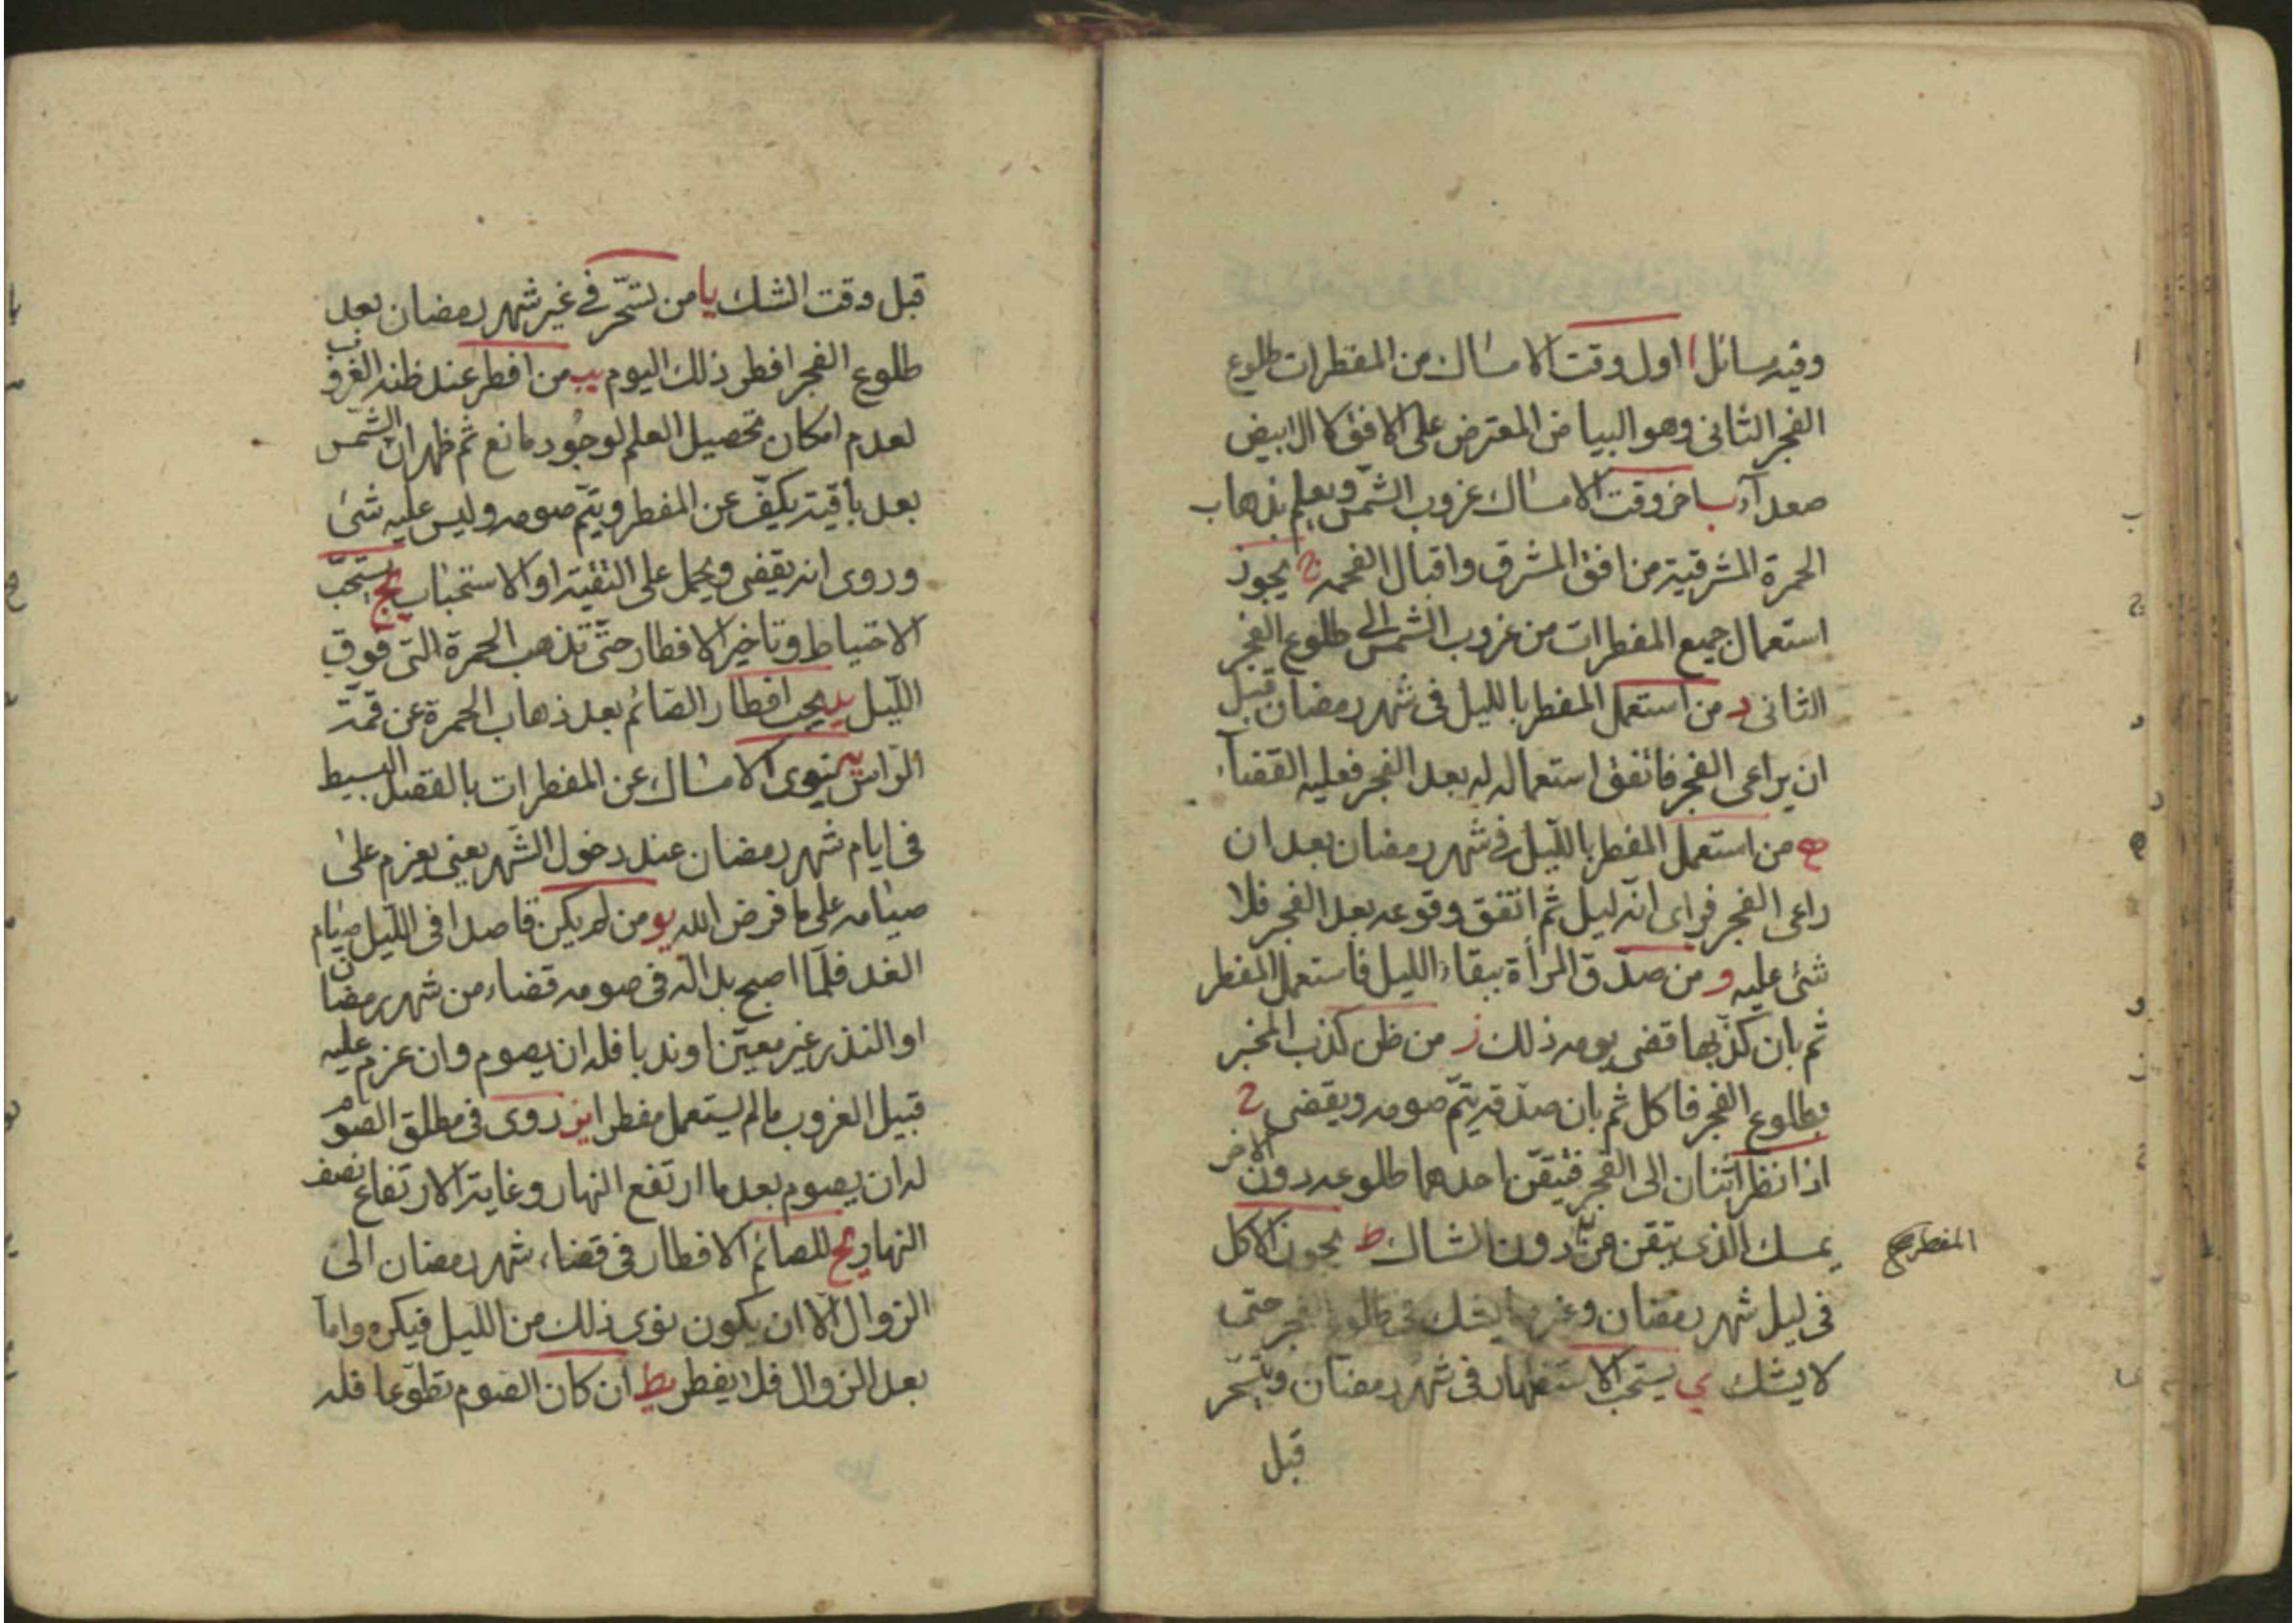 وفيه مسائل ا اول وقت الامساك من المفطرات طلوع
الفجر الثانى وهو البياض المعترض على الافق كالابيض
صعدآء ب اخر وقت الامساك غروب الشمس ويعلم بذهاب
الحمرة المشرقية من افق المشرق واقبال الفحمه ج يجوز
استعمال جميع المفطرات من غروب الشمس الى طلوع الفجر
الثانى د من استعمل المفطر بالليل فى شهر رمضان قبل
ان يراعى الفجر فاتفق استعماله له بعد الفجر فعليه القضآء
ه من استعمل المفطر بالليل فى شهر رمضان بعد ان
راعى الفجر فراى انه ليل ثم اتفق وقوعه بعد الفجر فلا
شئ عليه و من صدق المرأة ببقاء الليل فاستعمل المفطر
ثم بان كذبها قضى يومه ذلك ز من ظن كذب المخبر
بطلوع الفجر فاكل ثم بان صدقه يتم صومه ويقضى ح
اذا نظر اثنان الى الفجر فتيقن احدهما طلوعه دون الاخر
يمسك الذى يتقن عن دون الشاك ط يجوز الاكل
المفطر صح
فى ليل شهر رمضان وغيره يشك فى طلوع الفجر حتى
لا يشك ي يستحب الاستظهار فى شهر رمضان ويتسحر
قبل
قبل وقت الشك يا من تسحر فى غير شهر رمضان بعد
طلوع الفجر افطر ذلك اليوم يب من افطر عند ظنه الغروب
لعدم امكان تحصيل العلم لوجود مانع ثم ظهر ان الشمس
بعد باقية يكف عن المفطر ويتم صومه وليس عليه شئ
وروى انه يقضى ويحمل على التقية او الاستحباب يج يستحب
الاحتياط وتاخير الافطار حتى تذهب الحمرة التى فوق
الليل يد يجب افطار الصائم بعد ذهاب الحمرة عن قمة
الراس يه ينوى الامساك عن المفطرات بالقصد البسيط
فى ايام شهر رمضان عند دخول الشهر يعنى يعزم على
صيامه على ما فرض الله يو من لم يكن قاصدا فى الليل صيام
الغد فلما اصبح بدا له فى صومه قضاء من شهر رمضان
او النذر غير معين او ندبا فله ان يصوم وان عزم عليه
قبيل الغروب ما لم يستعمل مفطرا يز روى فى مطلق الصوم
له ان يصوم بعد ما ارتفع النهار وغاية الارتفاع نصف
النهار يح للصائم الافطار فى قضاء شهر رمضان الى
الزوال الا ان يكون نوى ذلك من الليل فيكره واما
بعد الزوال فلا يفطر يط ان كان الصوم تطوعا فله